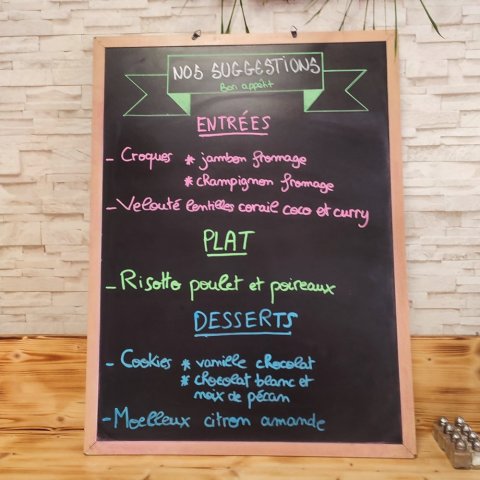 NOS SUGGESTIONS
Bon appétit
ENTRÉES
- Croques * jambon fromage
* champignon fromage
- Velouté lentilles corail coco et curry
PLAT
- Risotto poulet et poireaux
DESSERTS
- Cookies * vanille chocolat
* chocolat blanc et
noix de pécan
- Moelleux citron amande